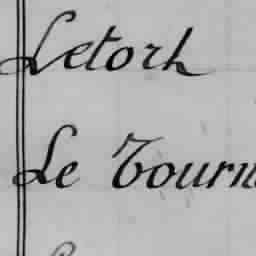 Letorh
Le Tourn